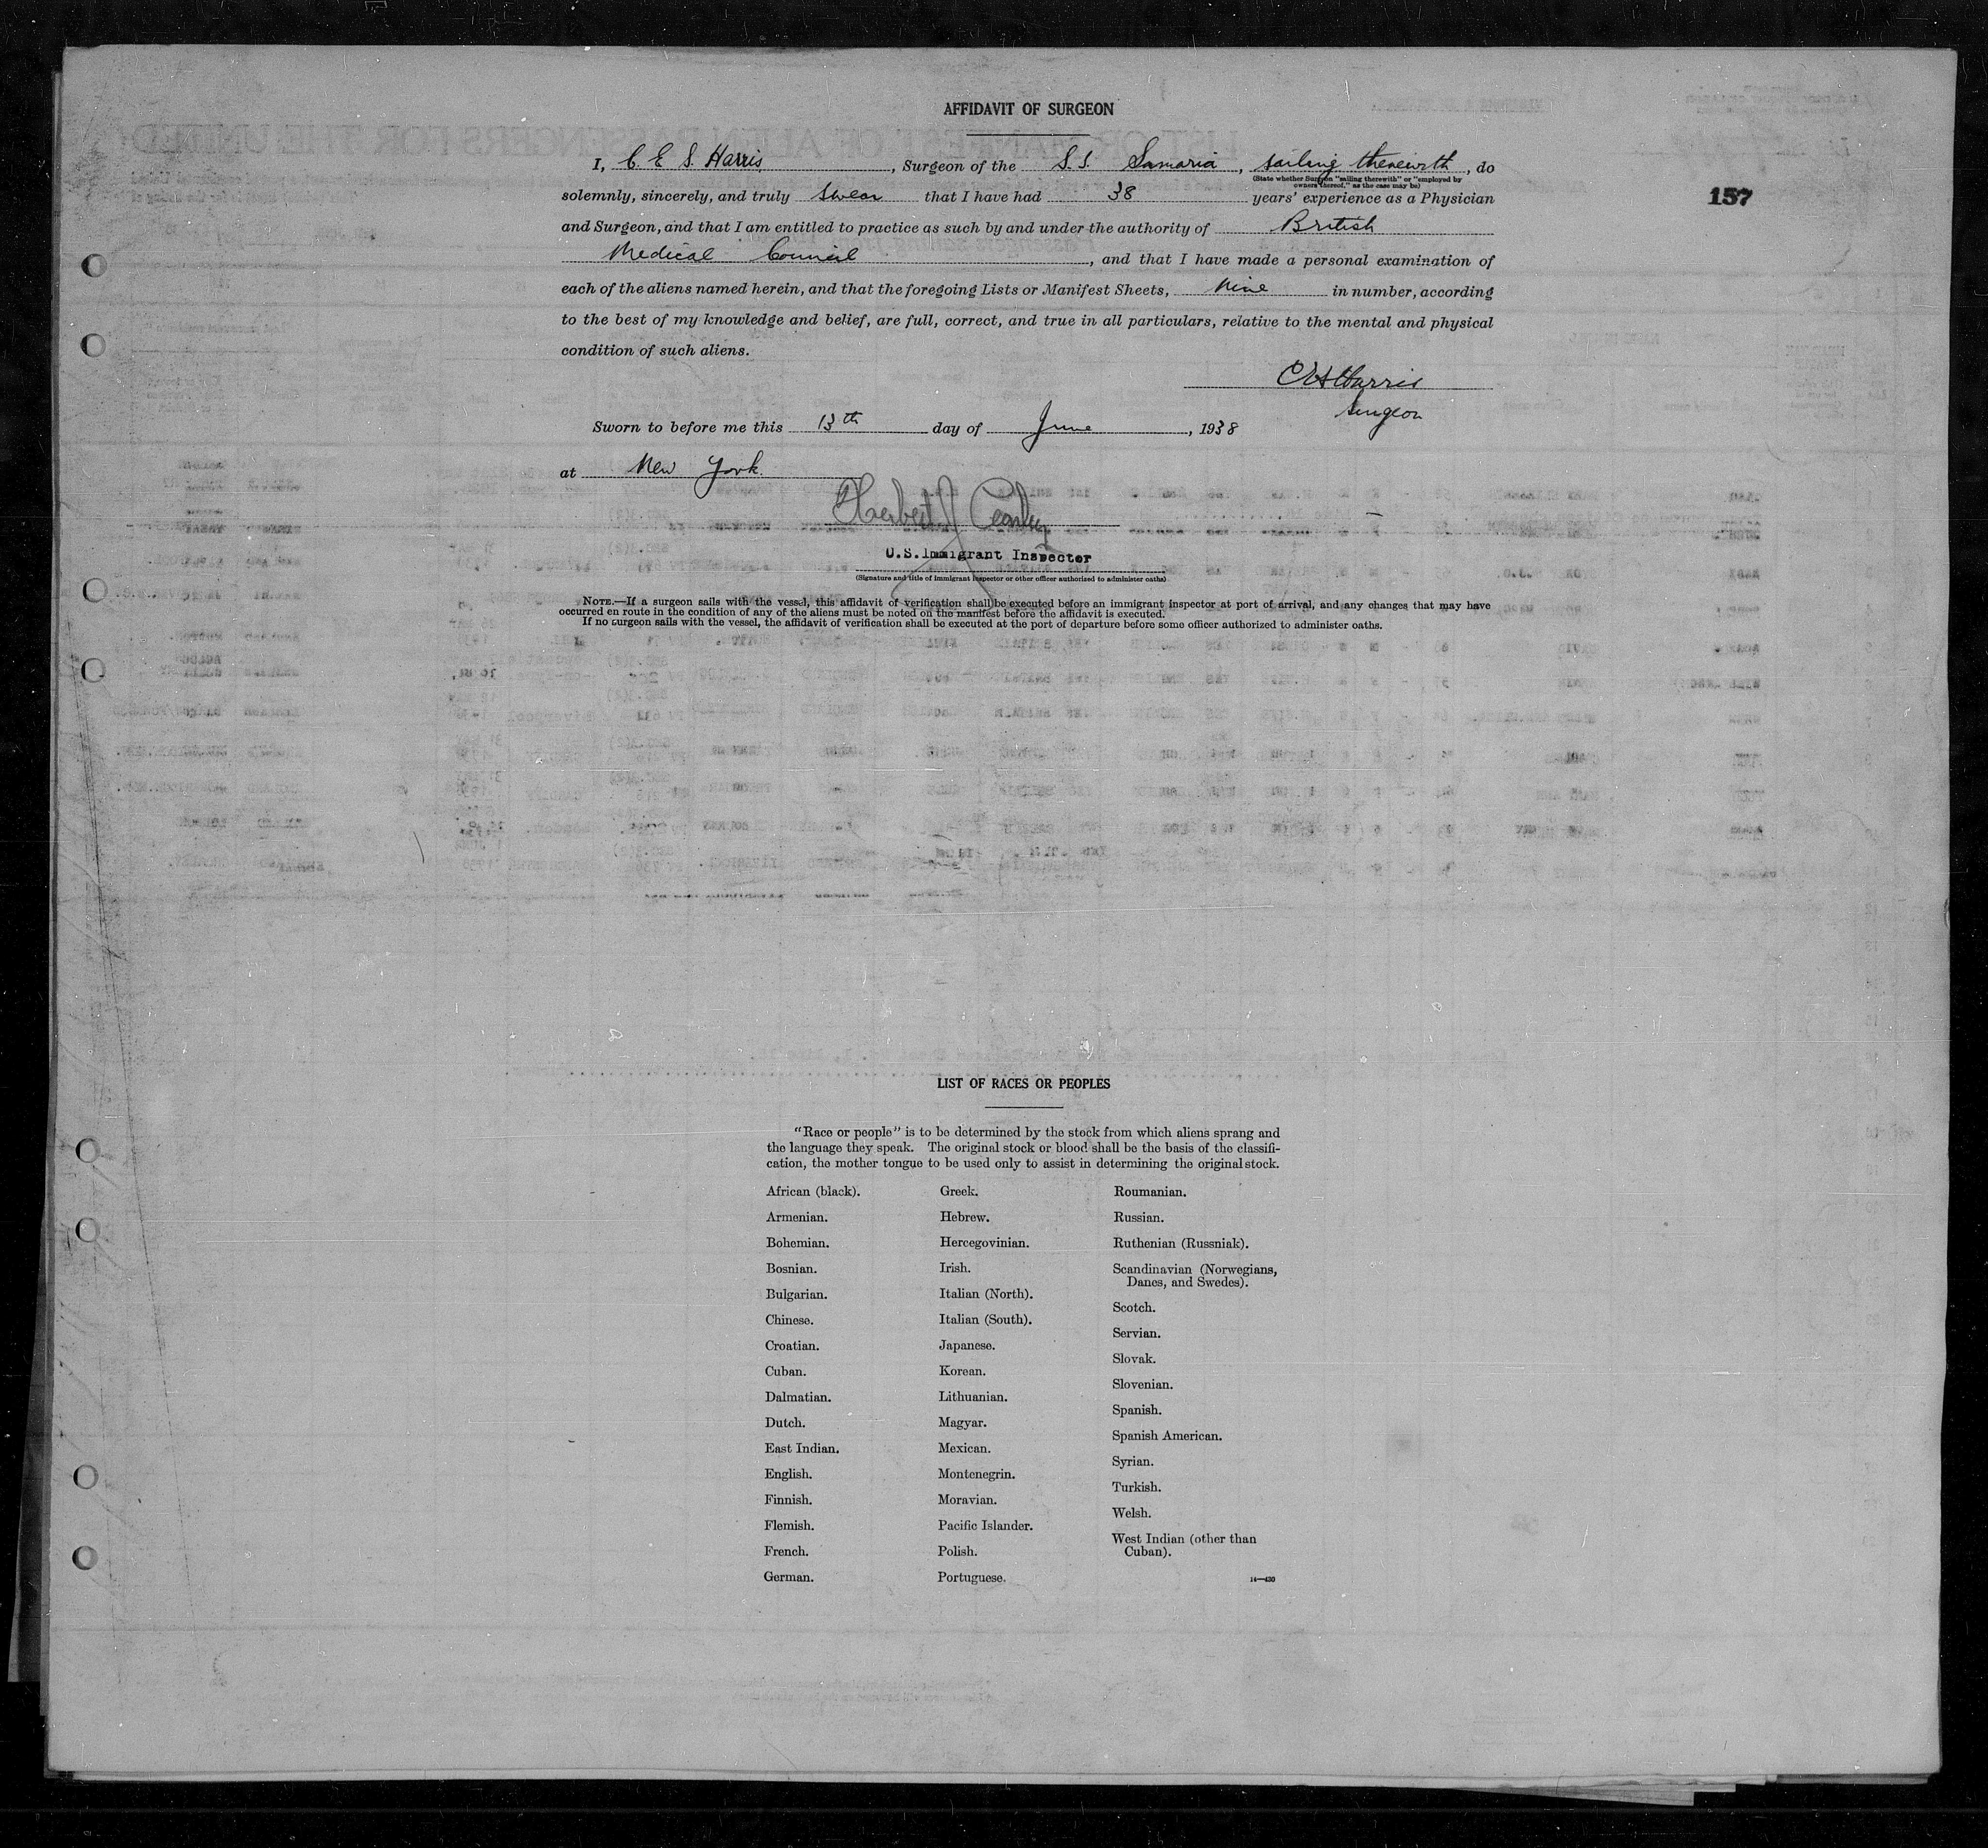 AFFIDAVIT OF SURGEON
I, C. E. S. Harris, Surgeon of the S.S. Samaria, sailing therewith, do
(State whether Surgeon "sailing therewith" or "employed by
owners thereof," as the case may be)
solemnly, sincerely, and truly swear that I have had 38 years' experience as a Physician
157
and Surgeon, and that I am entitled to practice as such by and under the authority of British
Medical Council, and that I have made a personal examination of
each of the aliens named herein, and that the foregoing Lists or Manifest Sheets, Nine in number, according
to the best of my knowledge and belief, are full, correct, and true in all particulars, relative to the mental and physical
condition of such aliens.
CES Harris
Surgeon
Sworn to before me this 13th day of June, 1938
at New York.
Herbert J
U.S. Immigrant Inspector
(Signature and title of immigrant inspector or other officer authorized to administer oaths)
NOTE.—If a surgeon sails with the vessel, this affidavit of verification shall be executed before an immigrant inspector at port of arrival, and any changes that may have
occurred en route in the condition of any of the aliens must be noted on the manifest before the affidavit is executed.
If no surgeon sails with the vessel, the affidavit of verification shall be executed at the port of departure before some officer authorized to administer oaths.
LIST OF RACES OR PEOPLES
"Race or people" is to be determined by the stock from which aliens sprang and
the language they speak. The original stock or blood shall be the basis of the classifi-
cation, the mother tongue to be used only to assist in determining the original stock.
African (black).
Armenian.
Bohemian.
Bosnian.
Bulgarian.
Chinese.
Croatian.
Cuban.
Dalmatian.
Dutch.
East Indian.
English.
Finnish.
Flemish.
French.
German.
Greek.
Hebrew.
Hercegovinian.
Irish.
Italian (North).
Italian (South).
Japanese.
Korean.
Lithuanian.
Magyar.
Mexican.
Montenegrin.
Moravian.
Pacific Islander.
Polish.
Portuguese.
Roumanian.
Russian.
Ruthenian (Russniak).
Scandinavian (Norwegians,
Danes, and Swedes).
Scotch.
Servian.
Slovak.
Slovenian.
Spanish.
Spanish American.
Syrian.
Turkish.
Welsh.
West Indian (other than
Cuban).
14—430